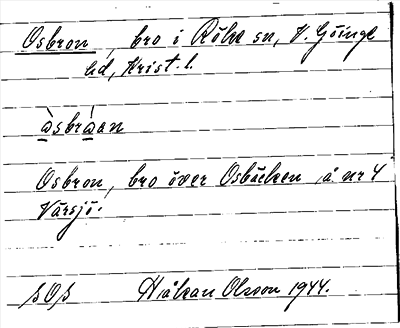 Osbron, bro i Röke sn, V. Göinge
hd, Krist. l.
àsbráan
Osbron, bro över Osbäcken å nr 4
Värsjö.
SOS Håkan Olsson 1944.